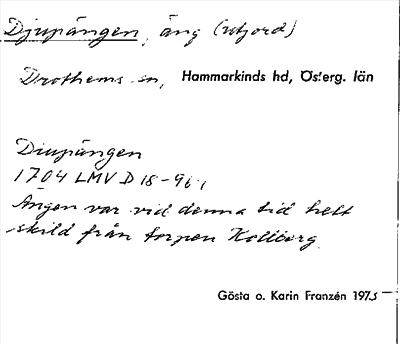 Djupängen, äng (utjord)
Drothems sn, Hammarkinds hd, Österg. län
Diupängen
1704 LMV D 18-96:1
Ängen var vid denna tid helt
skild från torpen Kollberg.
Gösta o. Karin Franzén 1975